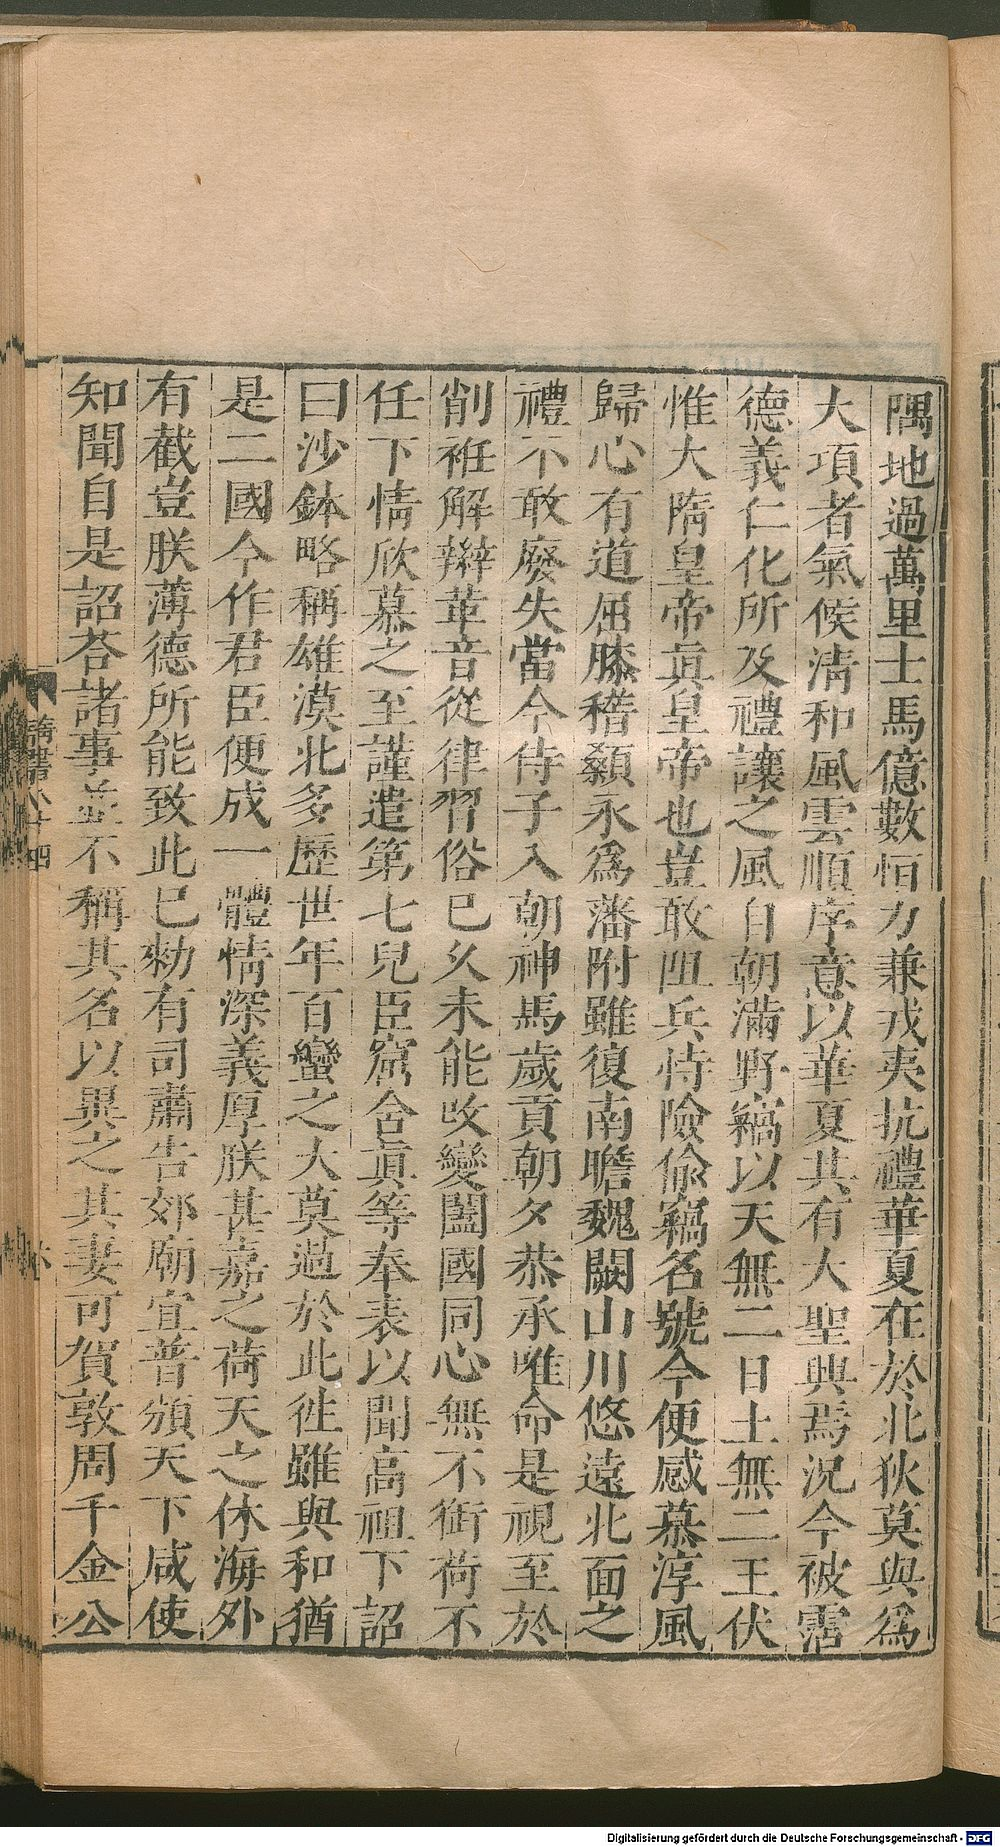 隅地過萬里士馬億數恒力兼戎夷抗禮華夏在於北狄莫與爲
大項者氣候清和風雲順序意以華夏其有大聖興焉況今被霑
德義仁化所及禮讓之風自朝滿野竊以天無二日土無二王伏
惟大隋皇帝眞皇帝也豈敢阻兵恃險偷竊名號今便感慕淳風
歸心有道屈膝稽顙永爲藩附雖復南瞻魏闕山川悠遠北面之
禮不敢廢失當今侍子入朝神馬歲貢朝夕恭承唯命是視至於
削袵解辮革音從律習俗已久未能改變闔國同心無不銜荷不
任下情欣慕之至謹遣第七兒臣窟含眞等奉表以聞高祖下詔
曰沙鉢略稱雄漠北多歷世年百蠻之大莫過於此徃雖與和猶
是二國今作君臣便成一體情深義厚朕甚嘉之荷天之休海外
有截豈朕薄德所能致此已勑有司肅告郊廟宜普頒天下咸使
知聞自是詔荅諸事並不稱其名以異之其妻可賀敦周千金公
隋書八十四
Digitalisierung gefördert durch die Deutsche Forschungsgemeinschaft - DFG